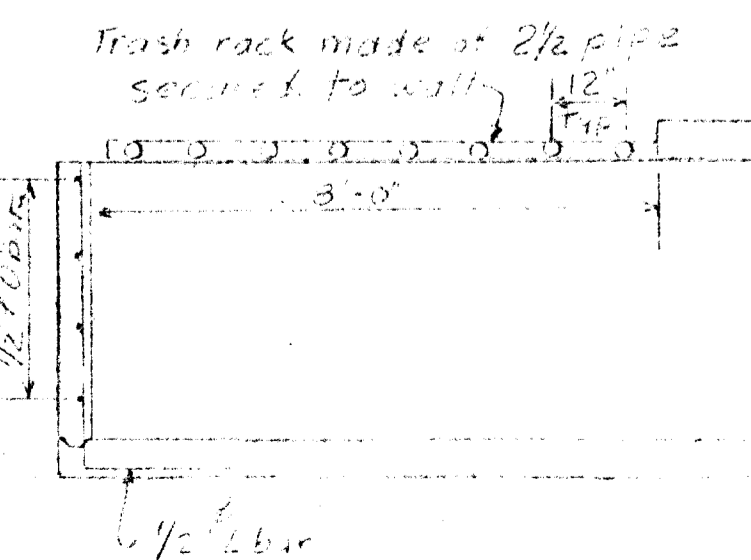 Trash rack made of 2½ pipe
secured to wall
12"
Typ
3'-0"
1/2
1/2" L bar